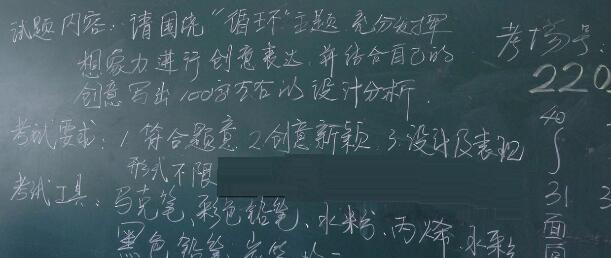 试题内容：请围绕“循环”主题，充分发挥
想象力进行创意表达，并结合自己的
创意写出100字左右的设计分析．
考试要求：1．符合题意 2．创意新颖 3．设计及表现
形式不限
考试工具：马克笔、彩色铅笔、水粉、丙烯、水彩
黑色铅笔
考场号：
220
40
31
面